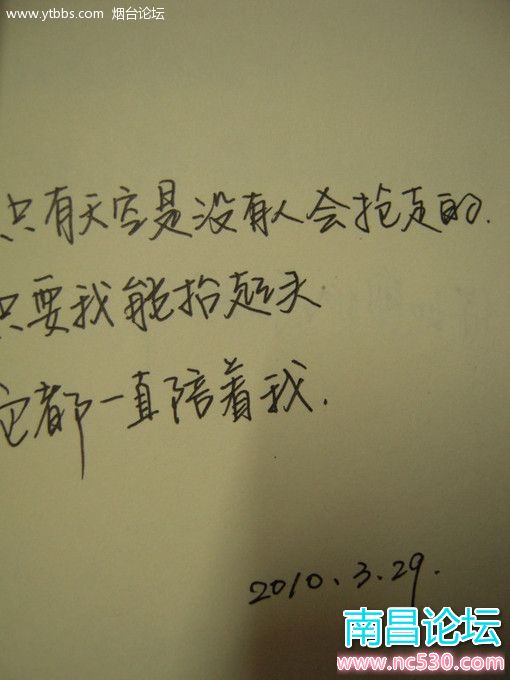 www.ytbbs.com 烟台论坛
只有天空是没有人会抢走的.
只要我能抬起头
它都一直陪着我.
2010.3.29.
南昌论坛
www.nc530.com